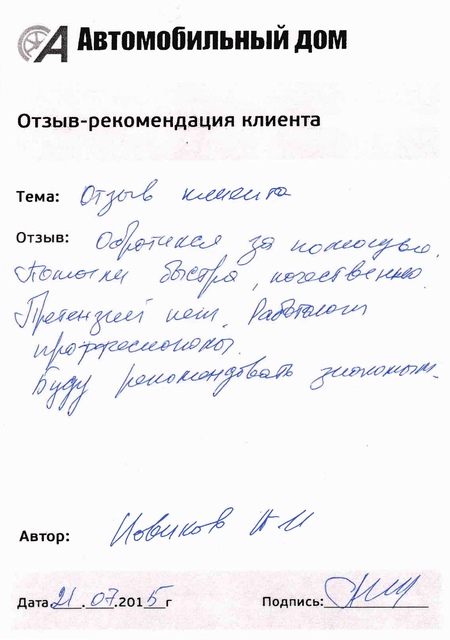 Автомобильный дом
Отзыв-рекомендация клиента
Тема: Отзыв клиента
Отзыв: Обратился за помощью.
Помогли быстро, качественно.
Претензий нет. Работают
профессионалы.
Буду рекомендовать знакомым.
Автор: Новиков А И
Дата 21.07.2015г Подпись: